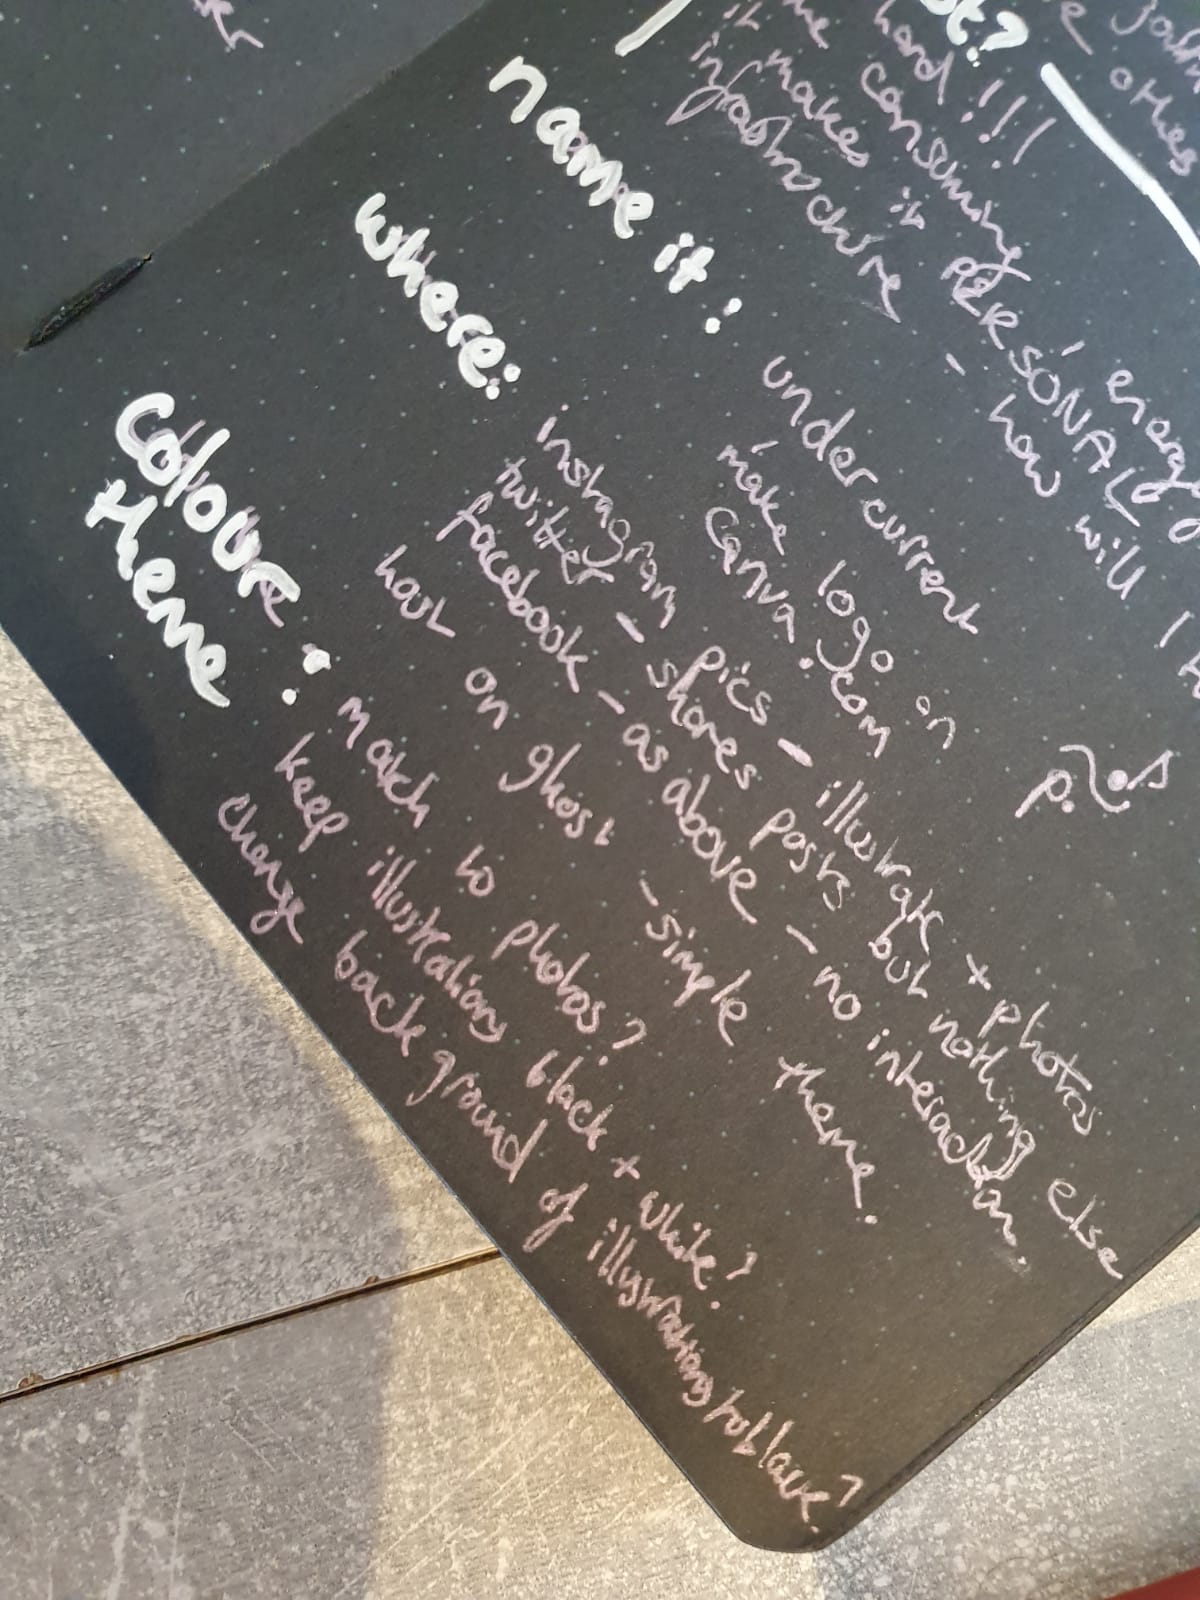 other
hard!!! 
time consuming energy
it makes it PERSONAL
infrastructure - how will I
name it: undercurrent
make logo on
canva.com
where: instagram pics - illustrate + photos
twitter - shares posts but nothing else
facebook - as above - no interaction.
host on ghost - simple theme.
colour
theme: match to photos?
keep illustrations black + white?
change background of illustrations to black?